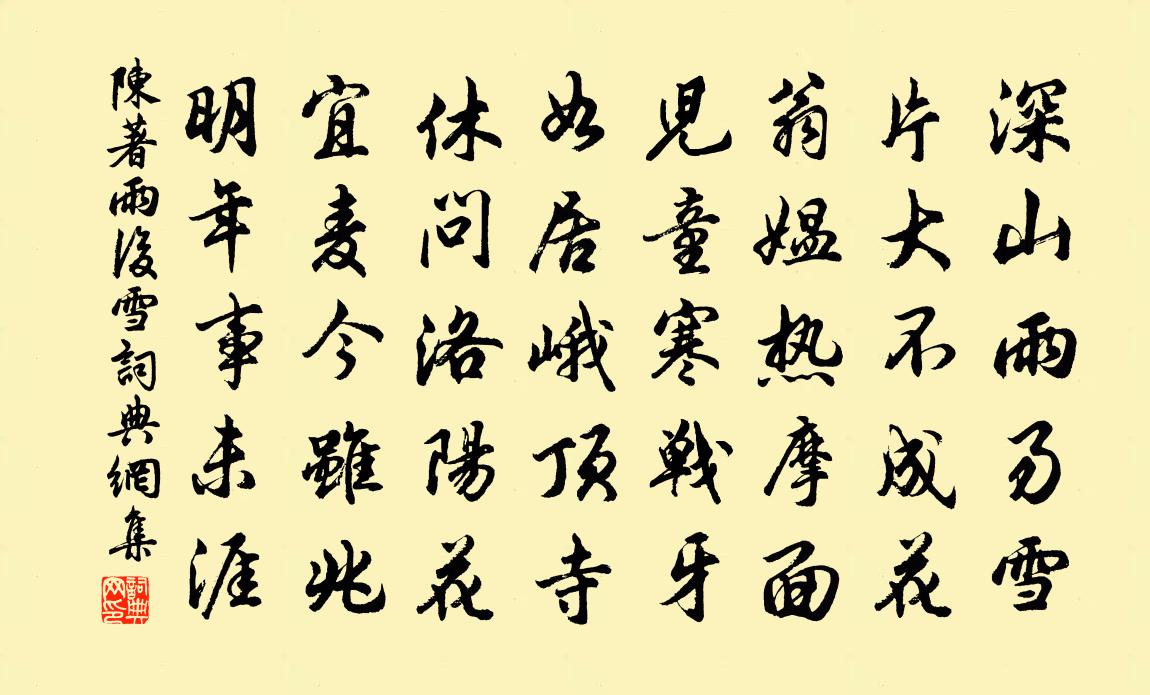 深山雨易雪
片大不成花
翁媪热摩面
児童寒戦牙
如居峨顶寺
休问洛陽花
宜麦今雖兆
明年事未涯
陳著雨後雪詞典網集
詞典网印